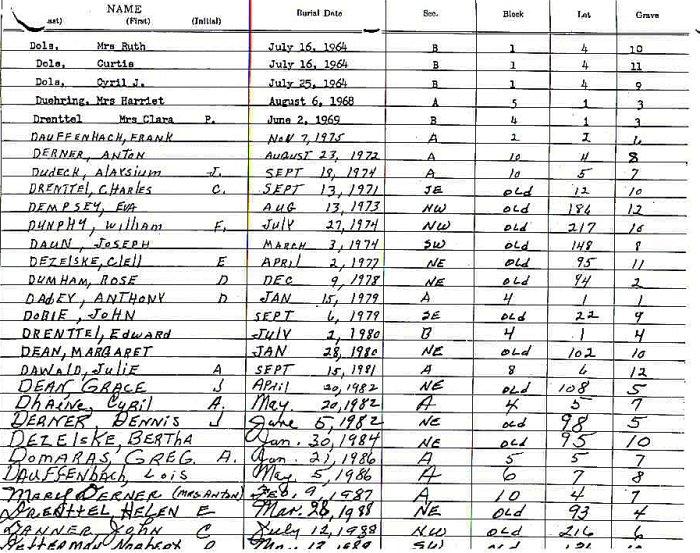 NAME Burial Date Sec. Block Lot Grave
(First) (Initial)
Dols, Mrs Ruth July 16, 1964 B 1 4 10
Dols, Curtis July 16, 1964 B 1 4 11
Dols, Cyril J. July 25, 1964 B 1 4 9
Duehring, Mrs Harriet August 6, 1968 A 5 1 3
Drenttel Mrs Clara P. June 2, 1969 B 4 1 3
DAUFFENBACH, FRANK NOV 7, 1975 A 2
DERNER, ANTON AUGUST 23, 1972 A 10 4 8
DUdECK, ALAYSIUM J. SEPT 18, 1974 A 10 5 7
DRENTTEL, CHARLES C. SEPT 13, 1971 SE OLD 12 10
DEMPSEY, EVA AUG 13, 1973 NW OLD 186 12
DUNPHY, William F. JULY 27, 1974 NW OLD 217 10
DAUN, JOSEPH MARCH 3, 1974 SW OLD 148 8
DEZELSKE, Clell E APRIL 2, 1977 NE OLD 95 11
DUMHAM, ROSE D DEC 9, 1978 NE OLD 94 2
DADEY, ANTHONY D JAN 15, 1979 A 4 1 1
DOBIE, JOHN SEPT 6, 1979 SE OLD 22 9
DRENTTEL, EDWARD JULY 2, 1980 B 4 1 4
DEAN, MARGARET JAN 28, 1980 NE OLD 102 10
DAWALD, JULIE A SEPT 15, 1981 A 8 6 12
DEAN GRACE J APRIL 20, 1982 NE OLD 108 5
Dhaine, Cyril A. May. 20, 1982 A 4 5 7
DERNER, DENNIS J June 5, 1982 NE OLD 98 5
DEZELSKE, BERTHA Jan. 30, 1984 NE OLD 95 10
DOMARAS, GREG. A. Jan. 21, 1986 A 5 5 7
DAUFFENbach, Lois May 5, 1986 A 6 7 8
MARY DERNER (MRS ANTON) FEB. 9, 1987 A 10 4 7
DRENTTEL, HELEN E Mar. 28, 1988 NE OLD 93 4
DANNER, JOHN C July 12, 1988 NW OLD 216 6